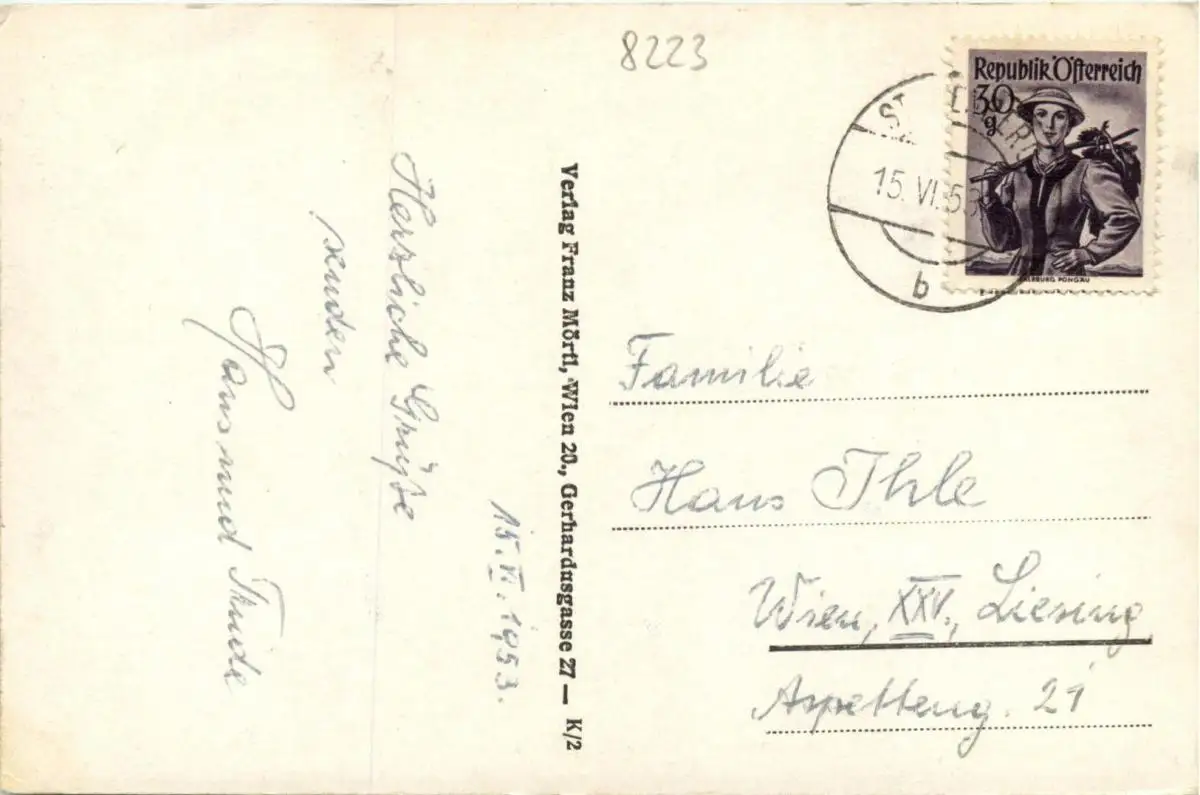 8223
Republik Österreich
30
g
SALZBURG PONGAU
15. VI. 53
b
Herzliche Grüße
senden
Hans und Trude
15. VI. 1953.
Verlag Franz Mörtl, Wien 20., Gerhardusgasse 27 — K/2
Familie
Hans Ihle
Wien, XXV., Liesing
Aspetteng. 21